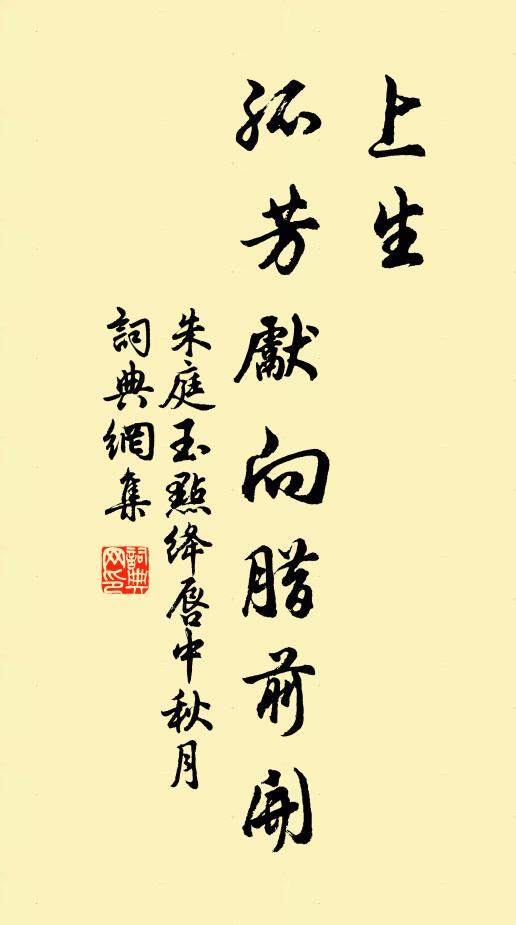 上生
孤芳獻向腊前開
朱庭玉點絳唇中秋月
詞典網集
詞典網印